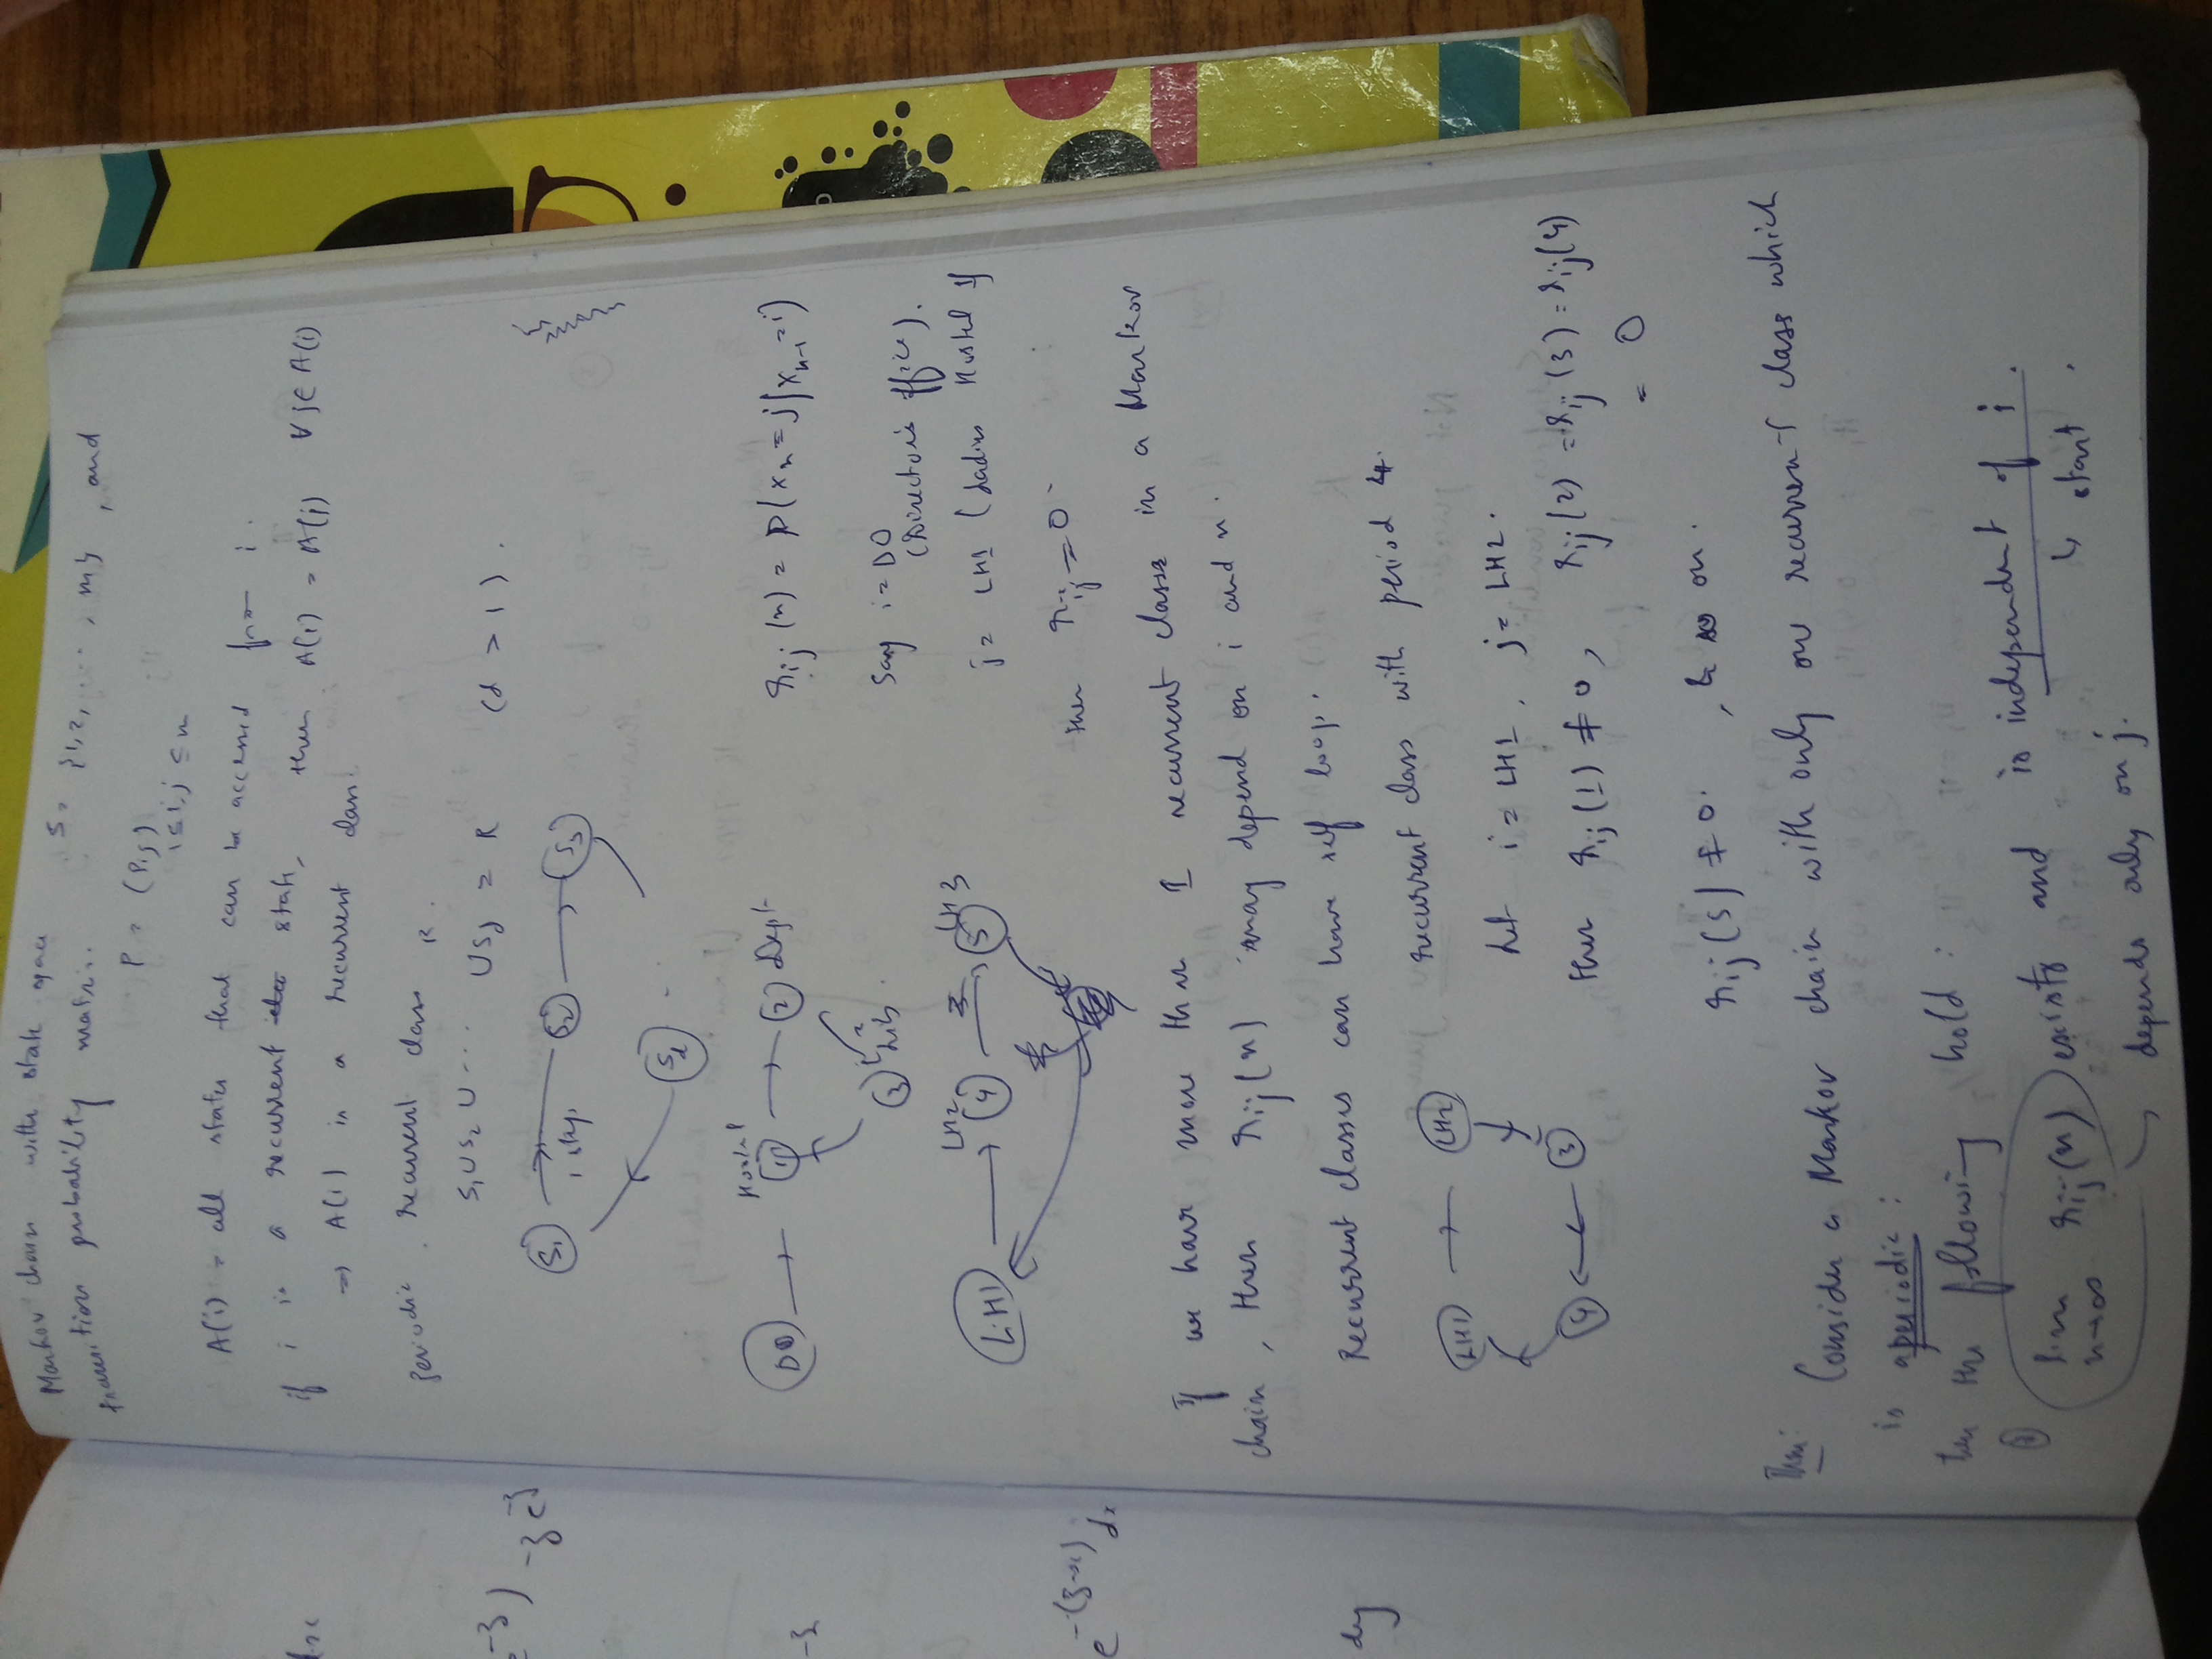 Markov chain with state space S = {1,2, ..., m} , and
transition probability matrix.
P = (Pij)
1≤i,j≤m
A(i) = all states that can be accessed from i.
if i is a recurrent state, then A(i) = A(j) ∀ j∈A(i)
⇒ A(i) is a recurrent class.
Periodic recurrent class R.
S1 U S2 U ... U Sd = R (d > 1).
S1 1 step S2 S3
Sd ...
DO Hostel 1 2 Dept
3 Lib.
rij(n) = P(Xn = j | Xn-1 = i)
Say i = DO
(Director's office).
LH1 LH2 4 5 LH3
j = LH1 (Ladies Hostel 1)
then rij = 0
If we have more than 1 recurrent class in a Markov
chain, then rij(n) may depend on i and n.
Recurrent classes can have self loop.
recurrent class with period 4.
LH1 LH2
4 3
Let i = LH1, j = LH2.
then rij(1) ≠ 0, rij(2) = rij(3) = rij(4)
= 0
rij(5) ≠ 0. , & so on.
Thm:
Consider a Markov chain with only one recurrent class which
is aperiodic :
then the following hold :
lim n→∞ rij(n) exists and is independent of i.
↳ start.
depends only on j.
-3) -3e-3
-3
e-(3-x) dx
dy